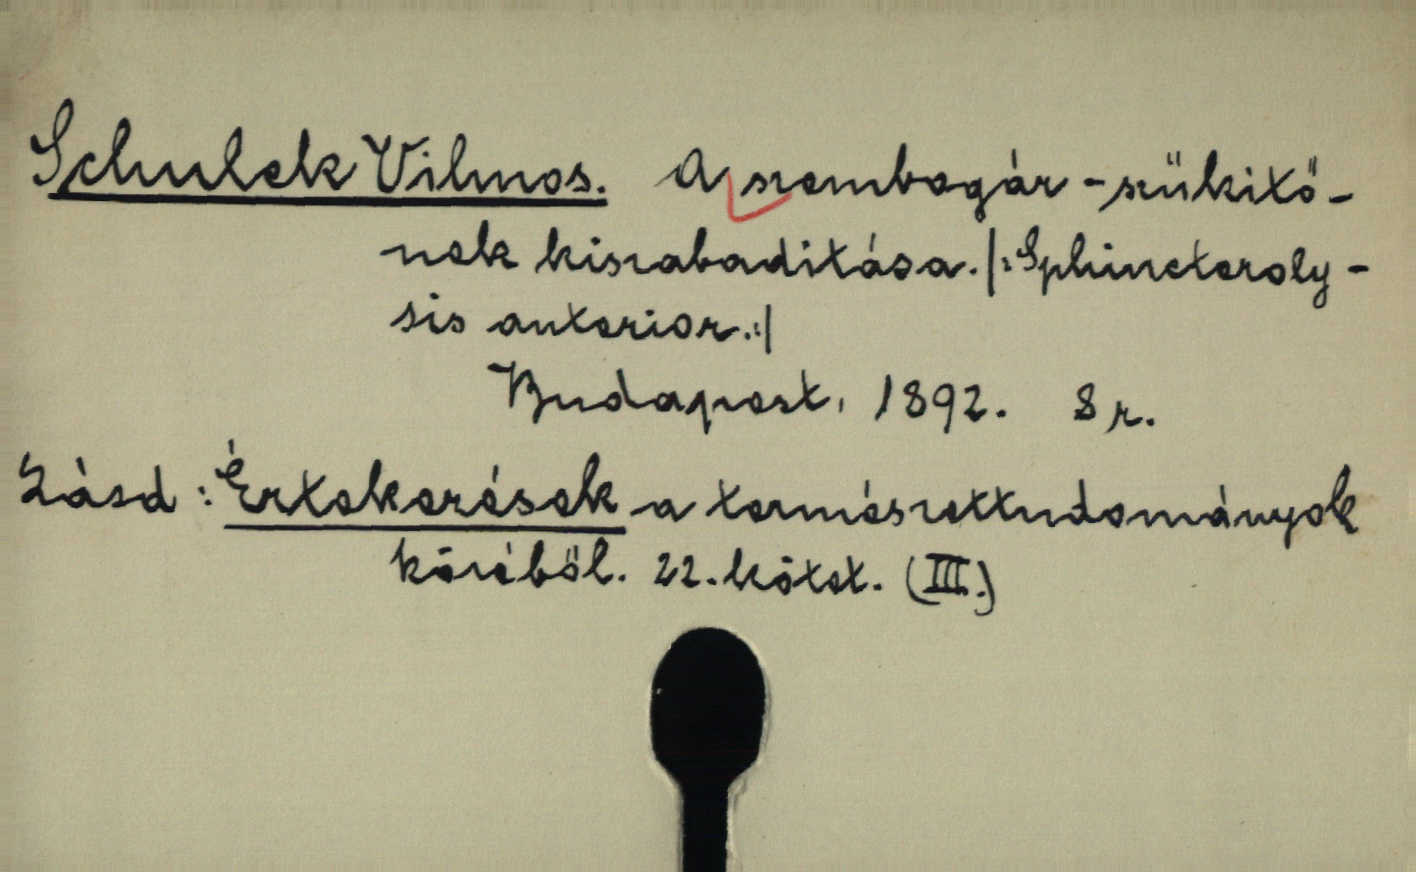 Schulek Vilmos. A szembogár-szűkitő-
nek kiszabaditása. |: Sphincteroly-
sis anterior. :|
Budapest, 1892. 8 r.
Lásd: Értekezések a természettudományok
köréből. 22. kötet. (III.)